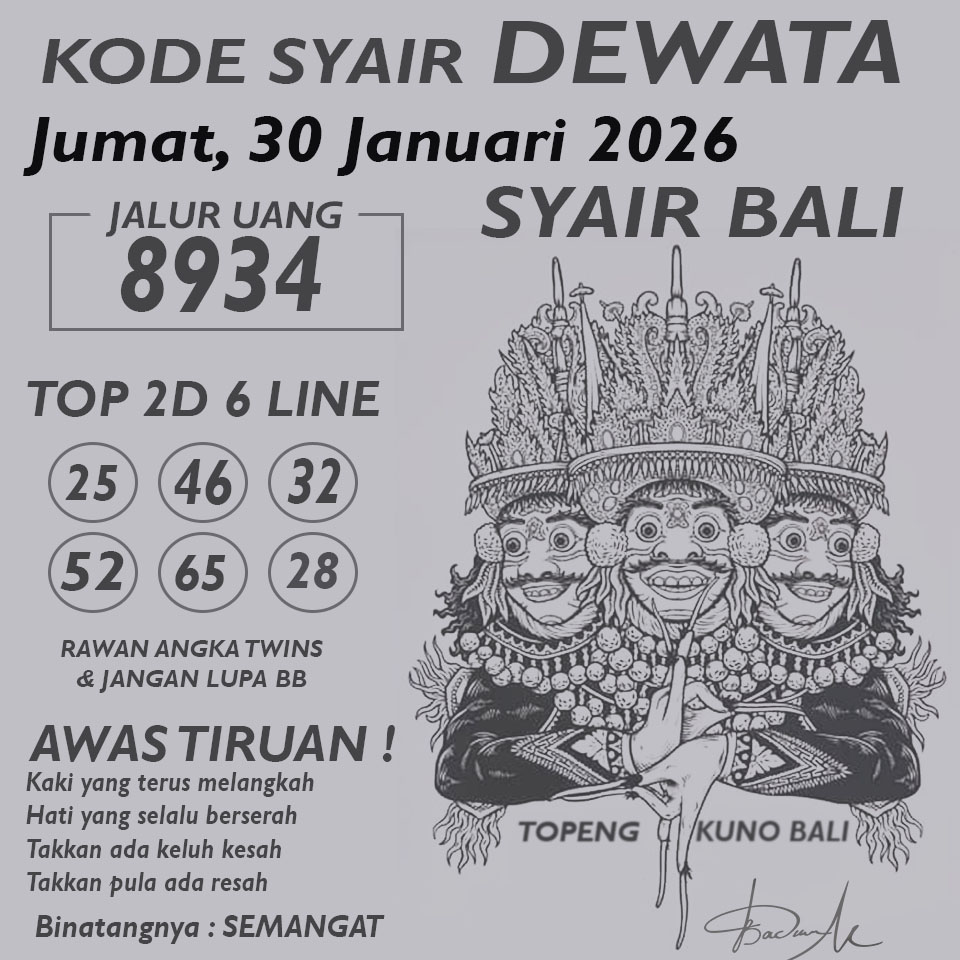 KODE SYAIR DEWATA
Jumat, 30 Januari 2026
SYAIR BALI
JALUR UANG
8934
TOP 2D 6 LINE
25 46 32
52 65 28
RAWAN ANGKA TWINS
& JANGAN LUPA BB
AWAS TIRUAN !
Kaki yang terus melangkah
Hati yang selalu berserah
Takkan ada keluh kesah
Takkan pula ada resah
Binatangnya : SEMANGAT
TOPENG KUNO BALI